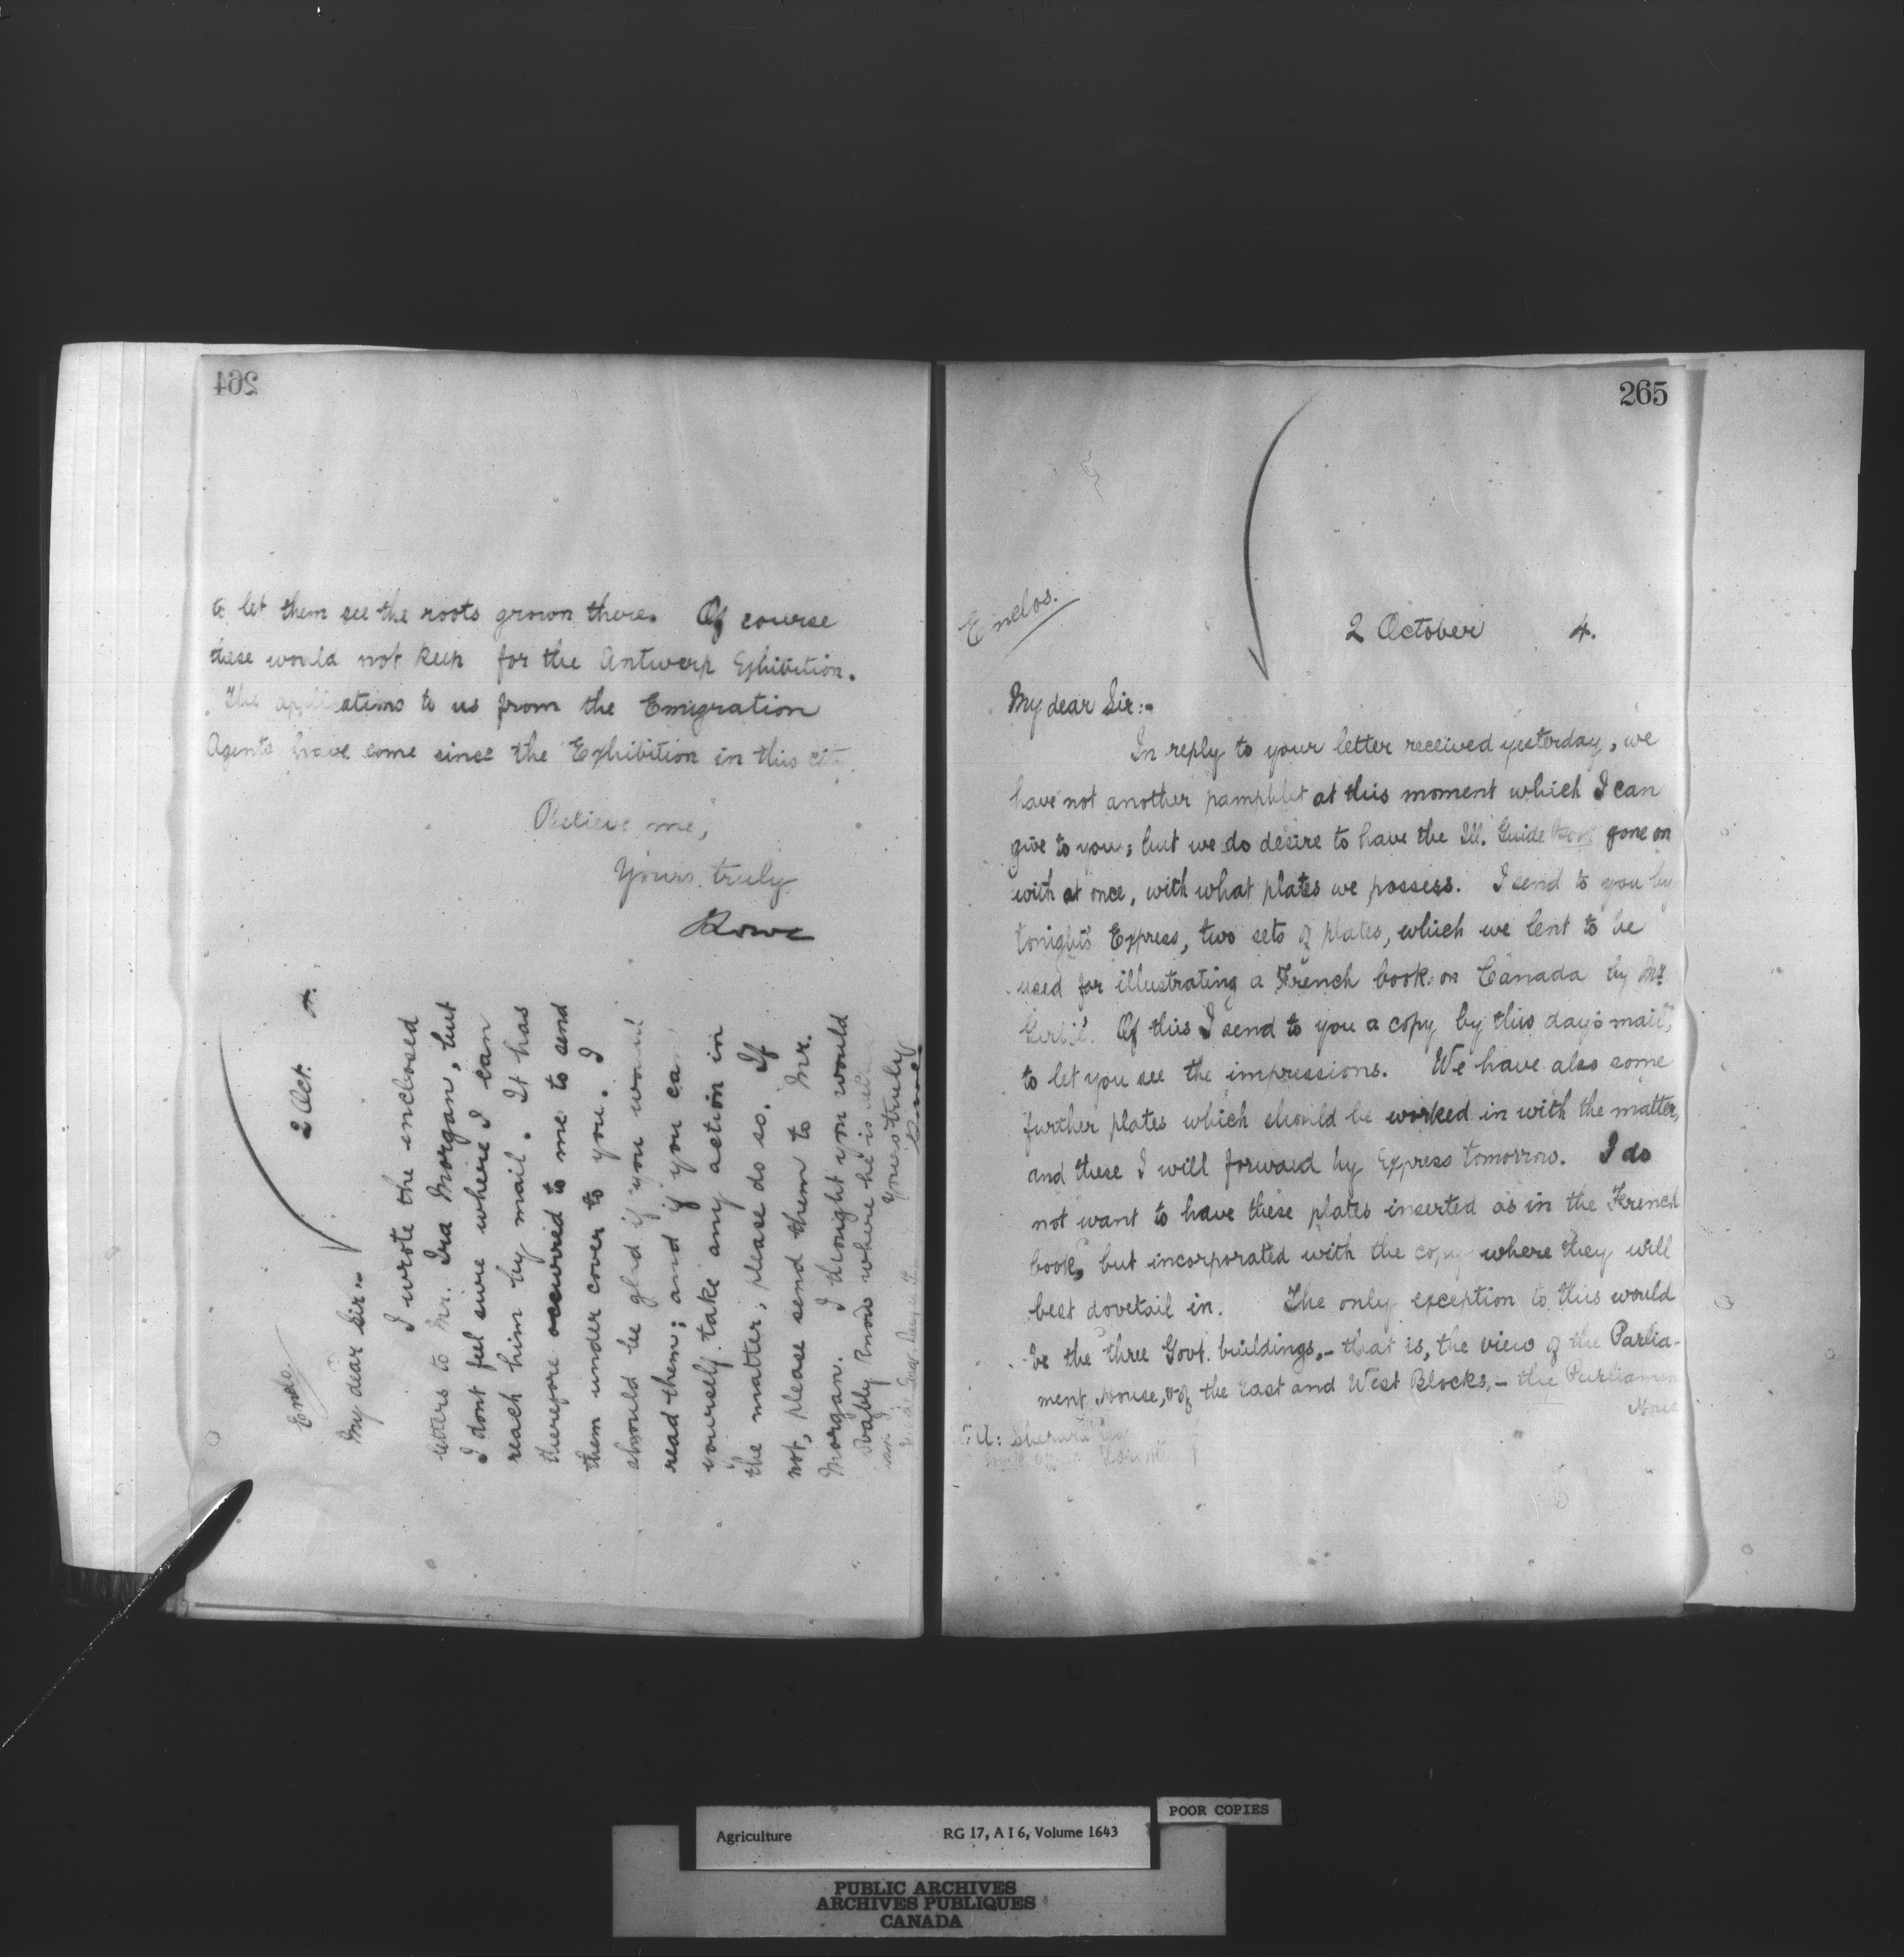 264
to let them see the roots grown there. Of course
these would not keep for the Antwerp Exhibition.
The applications to us from the Emigration
Agents have come since the Exhibition in this city.
Believe me,
Yours truly
Lowe
Enclo.
2 Oct. 4.
My dear Sir:-
I wrote the enclosed
letters to Mr. Ira Morgan, but
I dont feel sure where I can
reach him by mail. It has
therefore occurred to me to send
them under cover to you. I
should be glad if you would
read them; and if you can
yourself take any action in
the matter, please do so. If
not, please send them to Mr.
Morgan. I thought you would
bably know where he is
Yours truly
Lowe
265
Enclos.
2 October 4.
My dear Sir:-
In reply to your letter received yesterday, we
have not another pamphlet at this moment which I can
give to you; but we do desire to have the Ill. Guide Book gone on
with at once, with what plates we possess. I send to you by
tonight's Express, two sets of plates, which we lent to be
used for illustrating a French book on Canada by Mr
Of this I send to you a copy by this day's mail,
to let you see the impressions. We have also some
further plates which should be worked in with the matter,
and these I will forward by Express tomorrow. I do
not want to have these plates inserted as in the French
book, but incorporated with the copy where they will
best dovetail in. The only exception to this would
be the three Govt. buildings,- that is, the view of the Parlia-
ment House, & of the East and West Blocks,- the Parliamen
POOR COPIES
Agriculture RG 17, A I 6, Volume 1643
PUBLIC ARCHIVES
ARCHIVES PUBLIQUES
CANADA